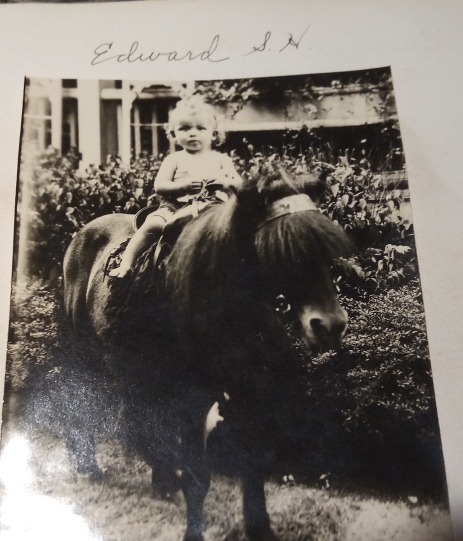 Edward S. H.